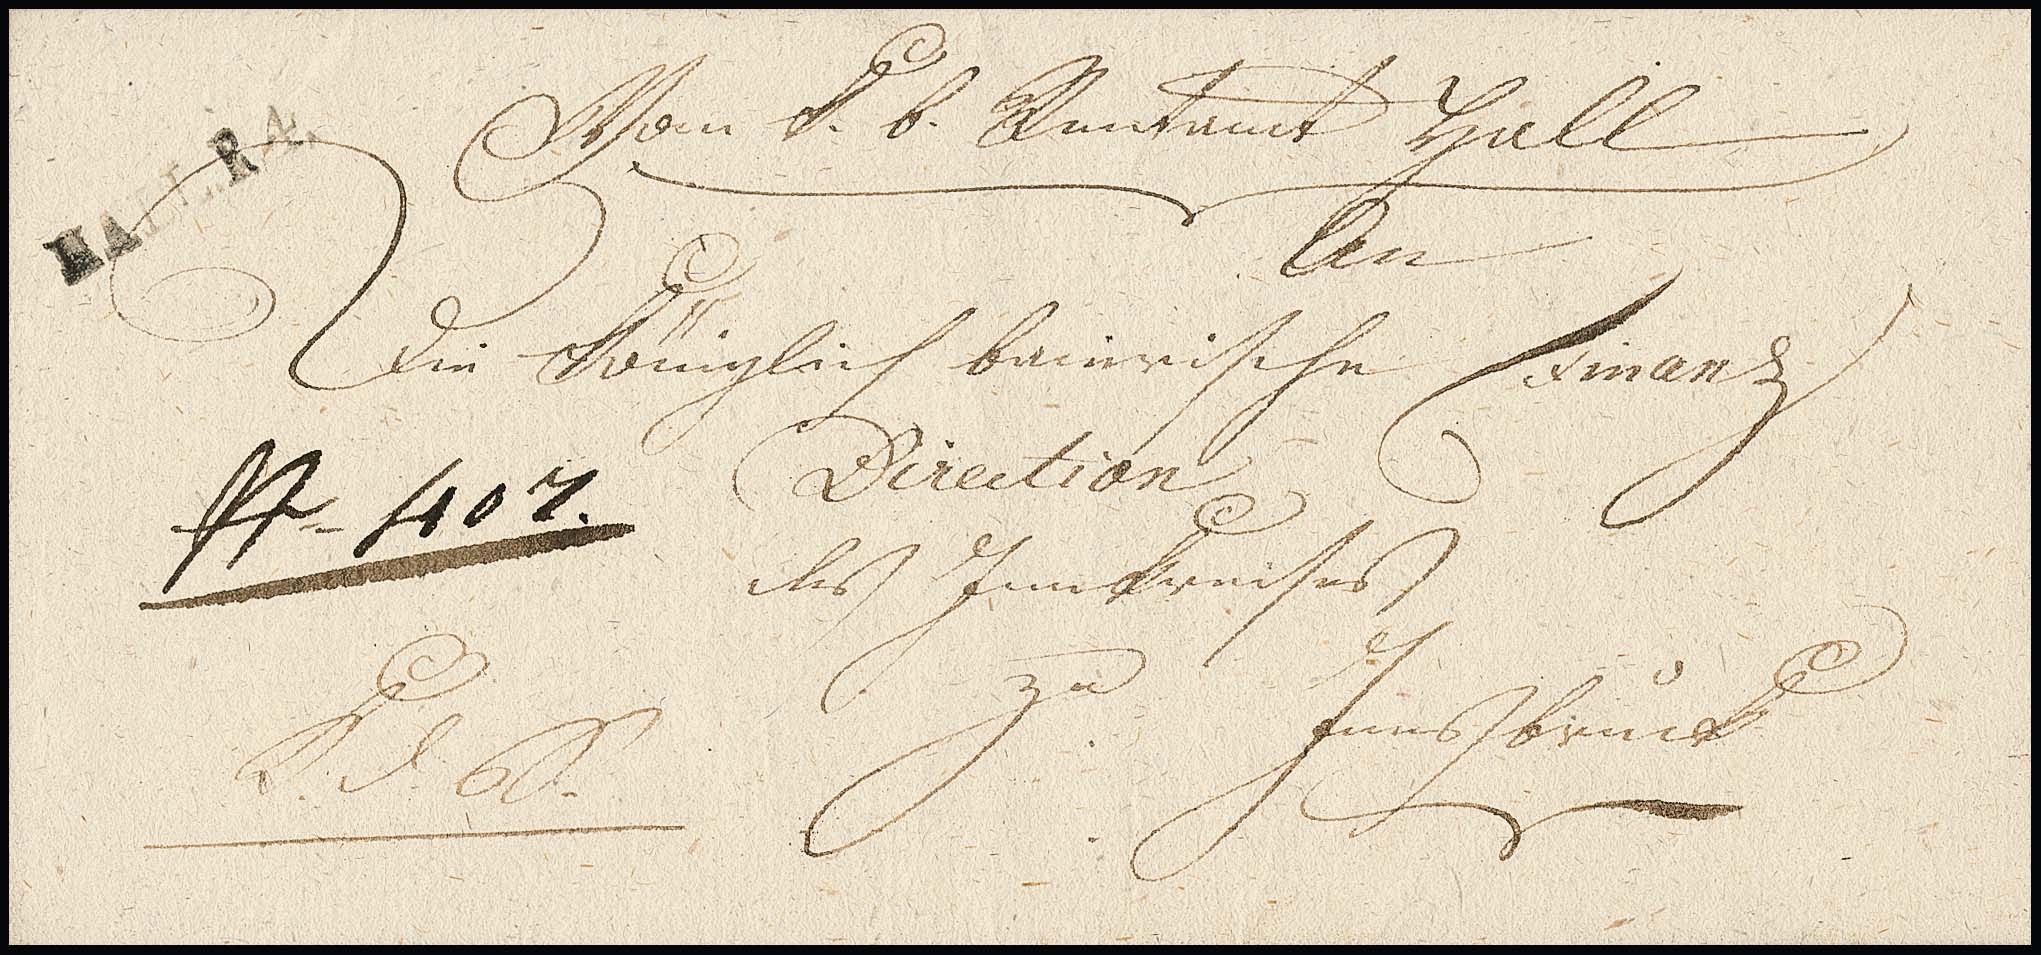 HALL. R.4.
Vom k. b. Rentamt Hall
An
die Königlich baierische Finanz
Direction
des Innkreises
zu Innsbruck
N 407.